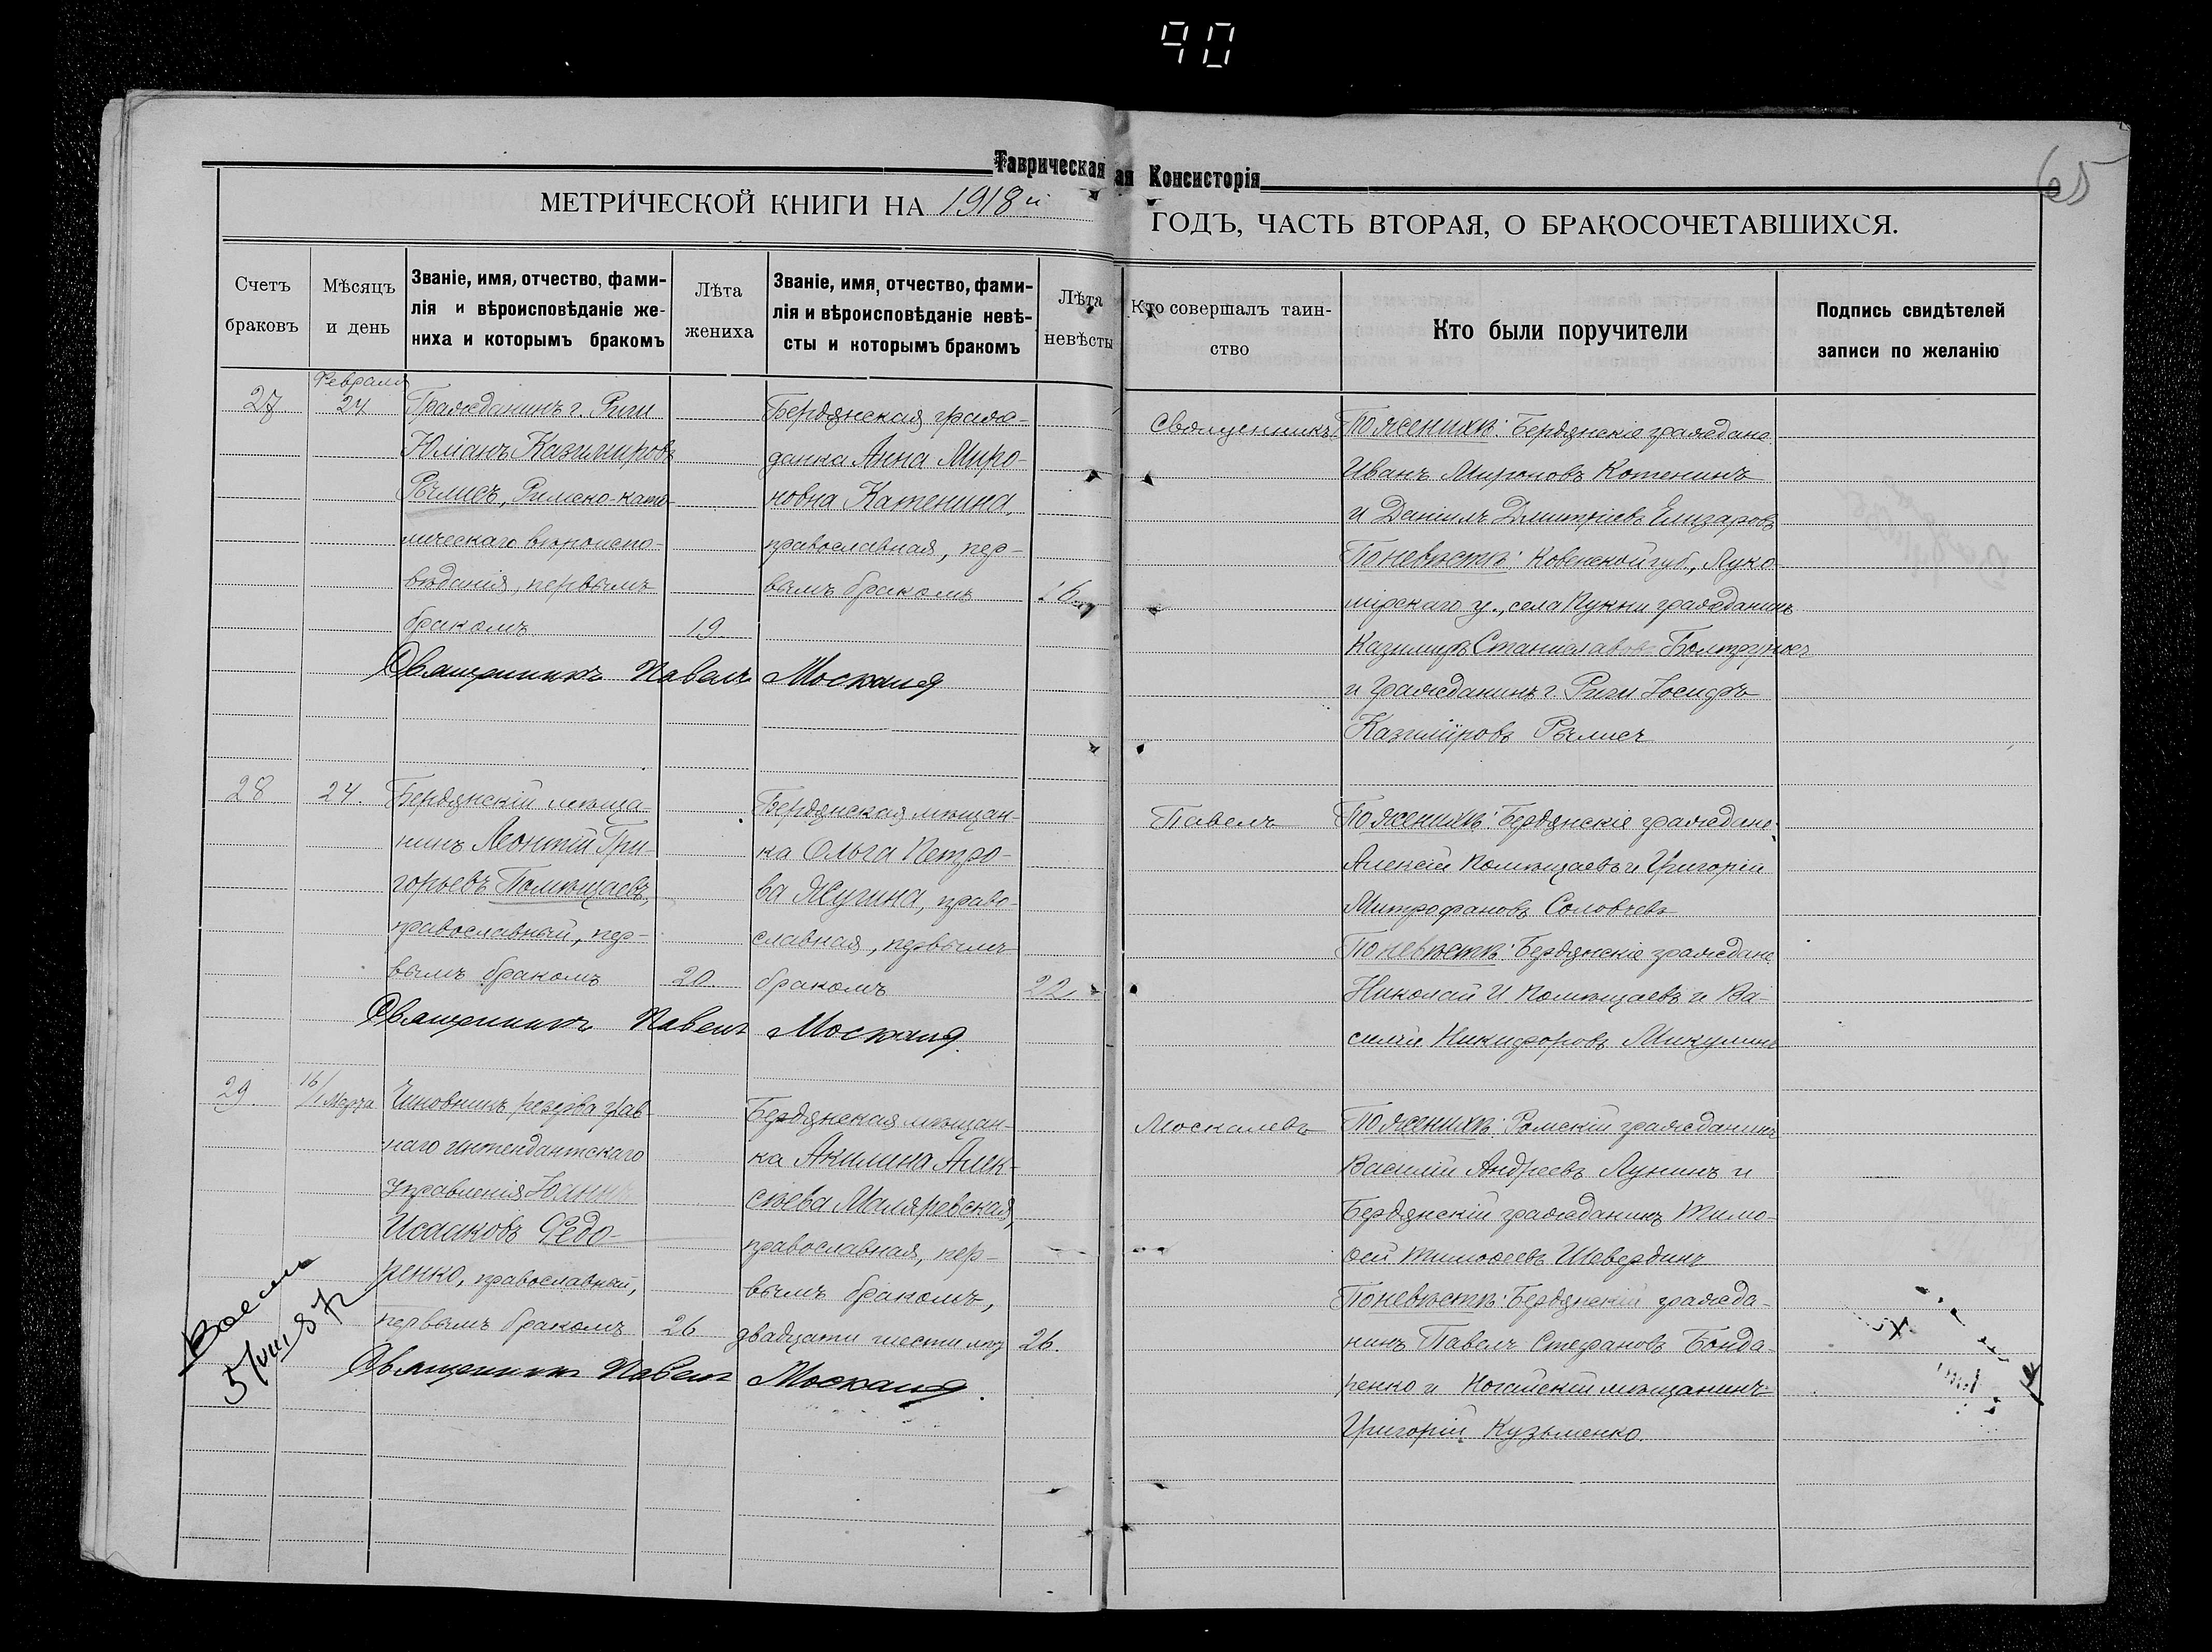 90
65
Таврическая
ая Консисторія
МЕТРИЧЕСКОЙ КНИГИ НА 1918й
ГОДЪ, ЧАСТЬ ВТОРАЯ, О БРАКОСОЧЕТАВШИХСЯ.
Счетъ браковъ
Мѣсяцъ и день
Званіе, имя, отчество, фами-
лія и вѣроисповѣданіе же-
ниха и которымъ бракомъ
Лѣта жениха
Званіе, имя, отчество, фами-
лія и вѣроисповѣданіе невѣ-
сты и которымъ бракомъ
Лѣта невѣсты
Кто совершалъ таин-
ство
Кто были поручители
Подпись свидѣтелей
записи по желанію
27
Февраля
24
Гражданинъ г. Риги
Юліанъ Казимировъ
Рылисъ, Римско-като-
лическаго вѣроиспо-
вѣданія, первымъ
бракомъ
19
Бердянская граж-
данка Анна Миро-
новна Катенина,
православная, пер-
вымъ бракомъ
16
Священникъ Павелъ Москалев
Священникъ
По женихѣ: Бердянскіе граждане
Иванъ Мироновъ Котенинъ
и Даніилъ Дмитріевъ Елизаровъ
По невѣстѣ: Ковенской губ.,
села Пукни гражданинъ
Казимиръ Станиславовъ
и гражданинъ г. Риги Іосифъ
Казиміровъ Рылисъ
28
24.
Бердянскій мѣща-
нинъ Леонтій Гри-
горьевъ Помѣщаевъ,
православный, пер-
вымъ бракомъ
20
Бердянская мѣщан-
ка Ольга Петро-
ва Жугина, право-
славная, первымъ
бракомъ
22
Священникъ Павелъ Москалев
Павелъ
По женихѣ: Бердянскіе граждане
Алексій Помѣщаевъ и Григорій
Митрофановъ Соловьевъ
По невѣстѣ: Бердянскіе граждане
Николай И Помѣщаевъ и Ва-
силій Никифоровъ Микулинъ
29.
16/1 Марта
Чиновникъ резерва глав-
наго интендантскаго
управленія
Исааковъ Федо-
ренко, православный,
первымъ бракомъ
26
Бердянская мѣщан-
ка Акилина Алек-
сѣева Маляревская,
православная, пер-
вымъ бракомъ,
двадцати шести лѣт
26.
Священникъ Павелъ Москалев.
Москалевъ
По женихѣ: гражданинъ
Василій Андреевъ Лунинъ и
Бердянскій гражданинъ Тимо-
ѳей Тимоѳеевъ Шевердинъ
По невѣстѣ: Бердянскій гражда-
нинъ Павелъ Стефановъ Бонда-
ренко и Ногайскій мѣщанинъ
Григорій Кузьменко.
5/VIII